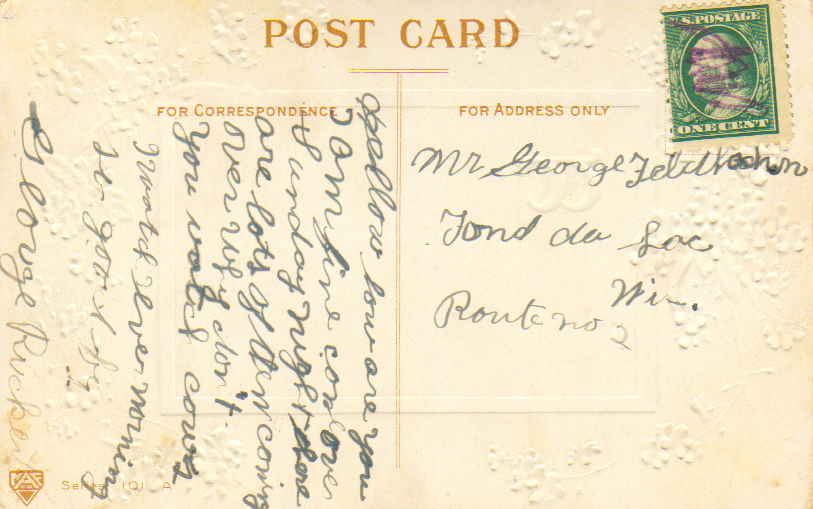 POST CARD
U.S. POSTAGE
ONE CENT
FOR CORRESPONDENCE
FOR ADDRESS ONLY
Hallow how are you
I am fine com over
Sunday night there
are lots of them coming
over why don't
you watch cows
I watch ever morning
so good by
George
Mr George
Fond du Lac
Wis.
Route no 2
Series 101 A